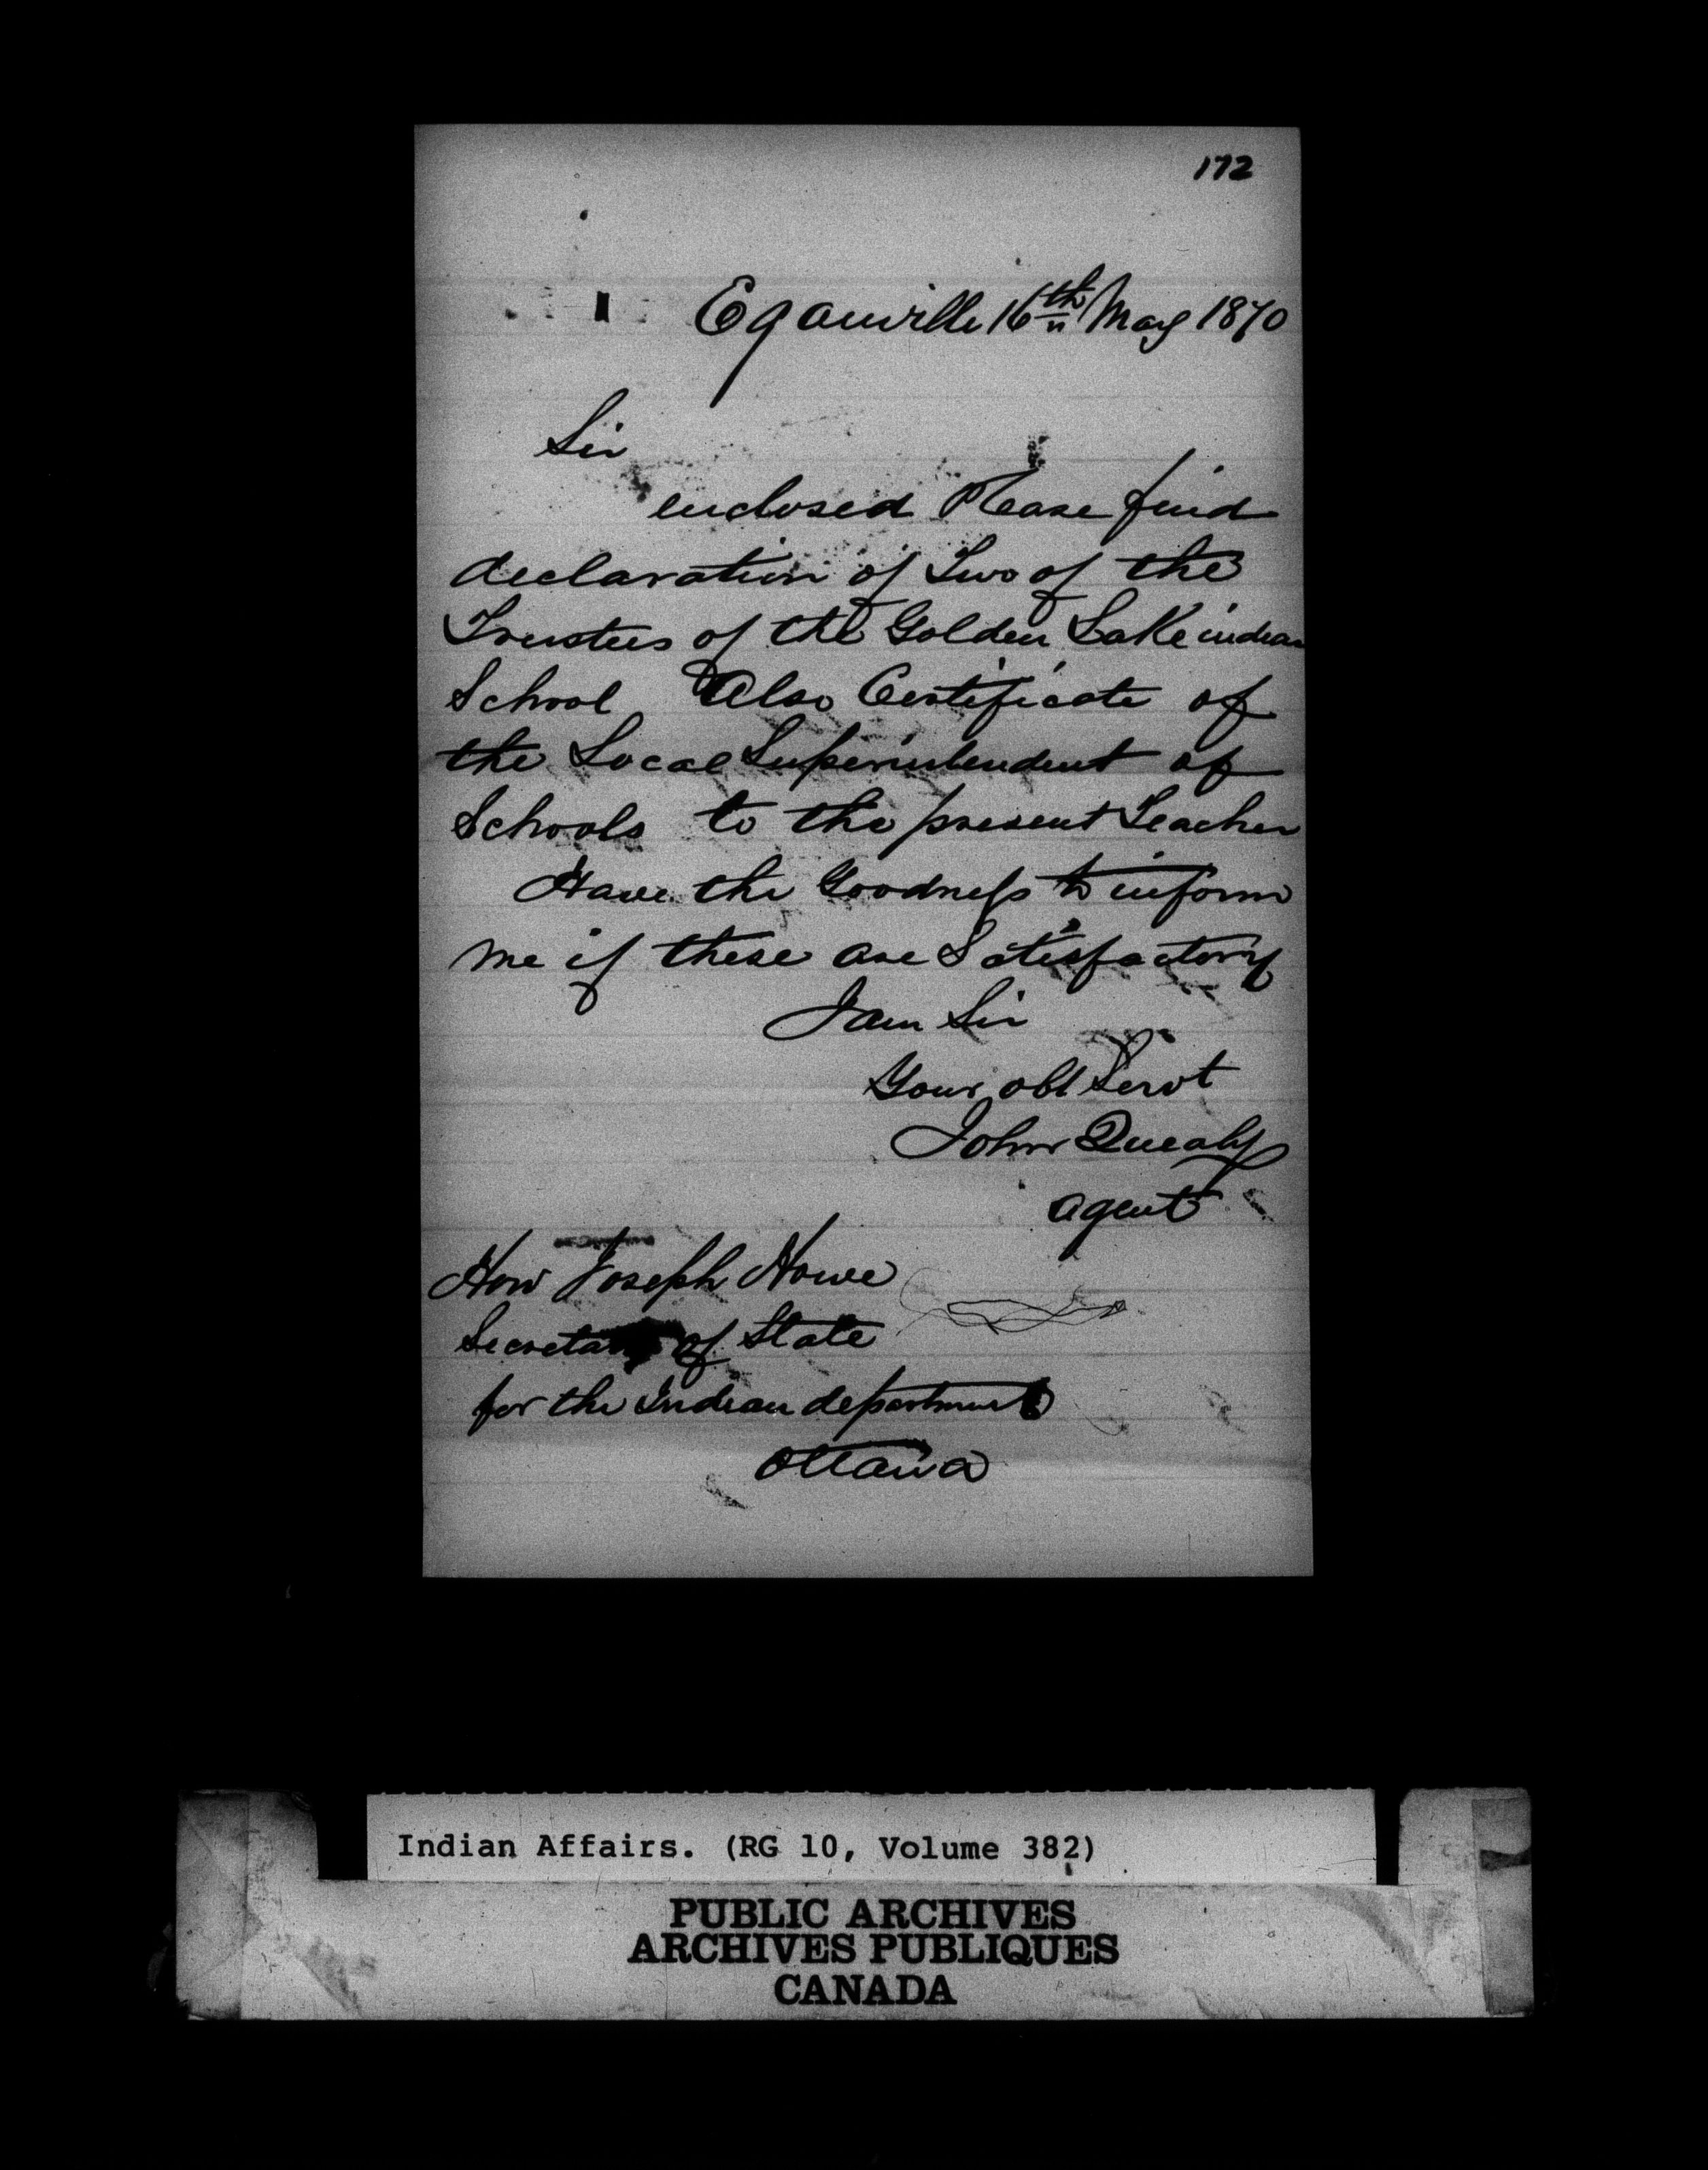 172
Eganville 16th May 1870
Sir
enclosed Please find
declaration of Two of the
Trustees of the Golden Lake indian
School Also Certificate of
the Local Superintendent of
Schools to the present Teacher
Have the Goodness to inform
me if these are Satisfactory
I am Sir
Your obt Servt
John Quealy
agent
Hon Joseph Howe
Secretary of State
for the Indian department
Ottawa
Indian Affairs. (RG 10, Volume 382)
PUBLIC ARCHIVES
ARCHIVES PUBLIQUES
CANADA